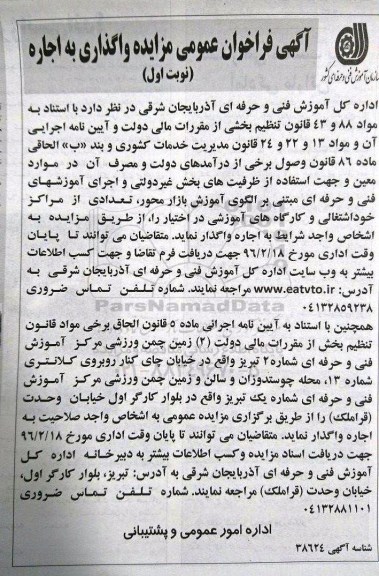 آگهی فراخوان عمومی مزایده واگذاری به اجاره
(نوبت اول)
سازمان آموزش فنی و حرفه ای کشور
اداره کل آموزش فنی و حرفه ای آذربایجان شرقی در نظر دارد با استناد به
مواد ۸۸ و ۴۳ قانون تنظیم بخشی از مقررات مالی دولت و آیین نامه اجرایی
آن و مواد ۱۳ و ۲۲ و ۲۴ قانون مدیریت خدمات کشوری و بند «ب» الحاقی
ماده ۸۶ قانون وصول برخی از درآمدهای دولت و مصرف آن در موارد
معین و جهت استفاده از ظرفیت های بخش غیردولتی و اجرای آموزشهای
فنی و حرفه ای مبتنی بر الگوی آموزش بازار محور، تعدادی از مراکز
خوداشتغالی و کارگاه های آموزشی در اختیار را، از طریق مزایده به
اشخاص واجد شرایط به اجاره واگذار نماید. متقاضیان می توانند تا پایان
وقت اداری مورخ ۹۶/۲/۱۸ جهت دریافت فرم تقاضا و جهت کسب اطلاعات
بیشتر به وب سایت اداره کل آموزش فنی و حرفه ای آذربایجان شرقی به
آدرس: www.eatvto.ir مراجعه نمایند. شماره تلفن تماس ضروری
۰۴۱۳۲۸۵۹۲۳۸
همچنین با استناد به آیین نامه اجرائی ماده ۵ قانون الحاق برخی مواد قانون
تنظیم بخش از مقررات مالی دولت (۲) زمین چمن ورزشی مرکز آموزش
فنی و حرفه ای شماره۲ تبریز واقع در خیابان جای کنار روبروی کلانتری
شماره ۱۳، محله چوستدوزان و سالن و زمین چمن ورزشی مرکز آموزش
فنی و حرفه ای شماره یک تبریز واقع در بلوار کارگر اول خیابان وحدت
(قراملک) را از طریق برگزاری مزایده عمومی به اشخاص واجد صلاحیت به
اجاره واگذار نماید. متقاضیان می توانند تا پایان وقت اداری مورخ ۹۶/۲/۱۸
جهت دریافت اسناد مزایده وکسب اطلاعات بیشتر به دبیرخانه اداره کل
آموزش فنی و حرفه ای آذربایجان شرقی به آدرس: تبریز، بلوار کارگر اول،
خیابان وحدت (قراملک) مراجعه نمایند. شماره تلفن تماس ضروری
۰۴۱۳۲۸۸۱۱۰۱
اداره امور عمومی و پشتیبانی
شناسه آگهی ۳۸۶۲۴
ParsNamadData